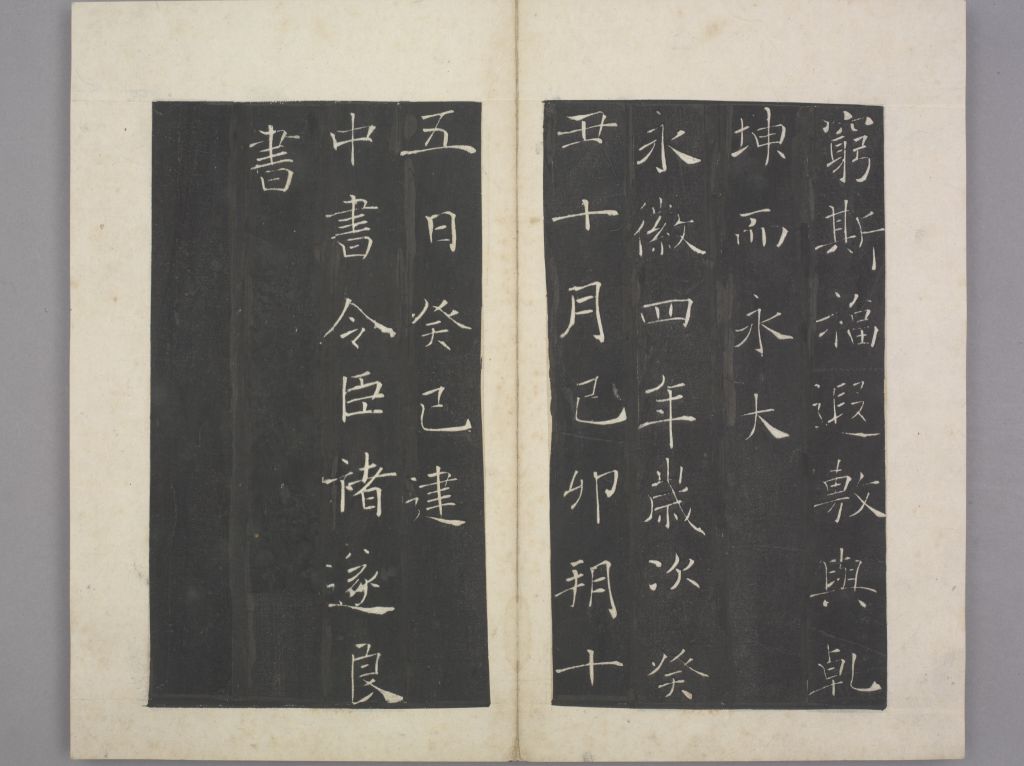 窮斯福遐敷與乹
坤而永大
永徽四年歲次癸
丑十月己卯朔十
五日癸巳建
中書令臣褚遂良
書